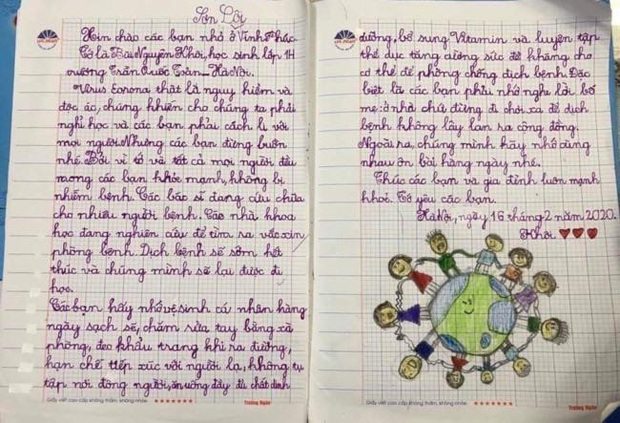 Sơn Lôi
Xin chào các bạn nhỏ ở Vĩnh Phúc.
Tớ là Bùi Nguyên Khôi, học sinh lớp 1H
trường Trần Quốc Toản - Hà Nội.
Virus Corona thật là nguy hiểm và
độc ác, chúng khiến cho chúng ta phải
nghỉ học và các bạn phải cách li với
mọi người. Nhưng các bạn đừng buồn
nhé. Bởi vì tớ và tất cả mọi người đều
mong các bạn khỏe mạnh, không bị
nhiễm bệnh. Các bác sĩ đang cứu chữa
cho nhiều người bệnh. Các nhà khoa
học đang nghiên cứu để tìm ra vắc xin
phòng bệnh. Dịch bệnh sẽ sớm hết
thúc và chúng mình sẽ lại được đi
học.
Các bạn hãy nhớ vệ sinh cá nhân hàng
ngày sạch sẽ, chăm rửa tay bằng xà
phòng, đeo khẩu trang khi ra đường,
hạn chế tiếp xúc với người lạ, không tụ
tập nơi đông người, ăn uống đầy đủ chất dinh
Giấy viết cao cấp không thấm, không nhòe
Trường Ngân
dưỡng, bổ sung Vitamin và luyện tập
thể dục tăng cường sức đề kháng cho
cơ thể để phòng chống dịch bệnh. Đặc
biệt là các bạn phải nhớ nghe lời bố
mẹ: ở nhà chứ đừng đi chơi xa để dịch
bệnh không lây lan ra cộng đồng.
Ngoài ra, chúng mình hãy nhớ cùng
nhau ôn bài hàng ngày nhé.
Chúc các bạn và gia đình luôn mạnh
khoẻ. Tớ yêu các bạn.
Hà Nội, ngày 16 tháng 2 năm 2020.
Khôi
Giấy viết cao cấp không thấm, không nhòe
Trường Ngân